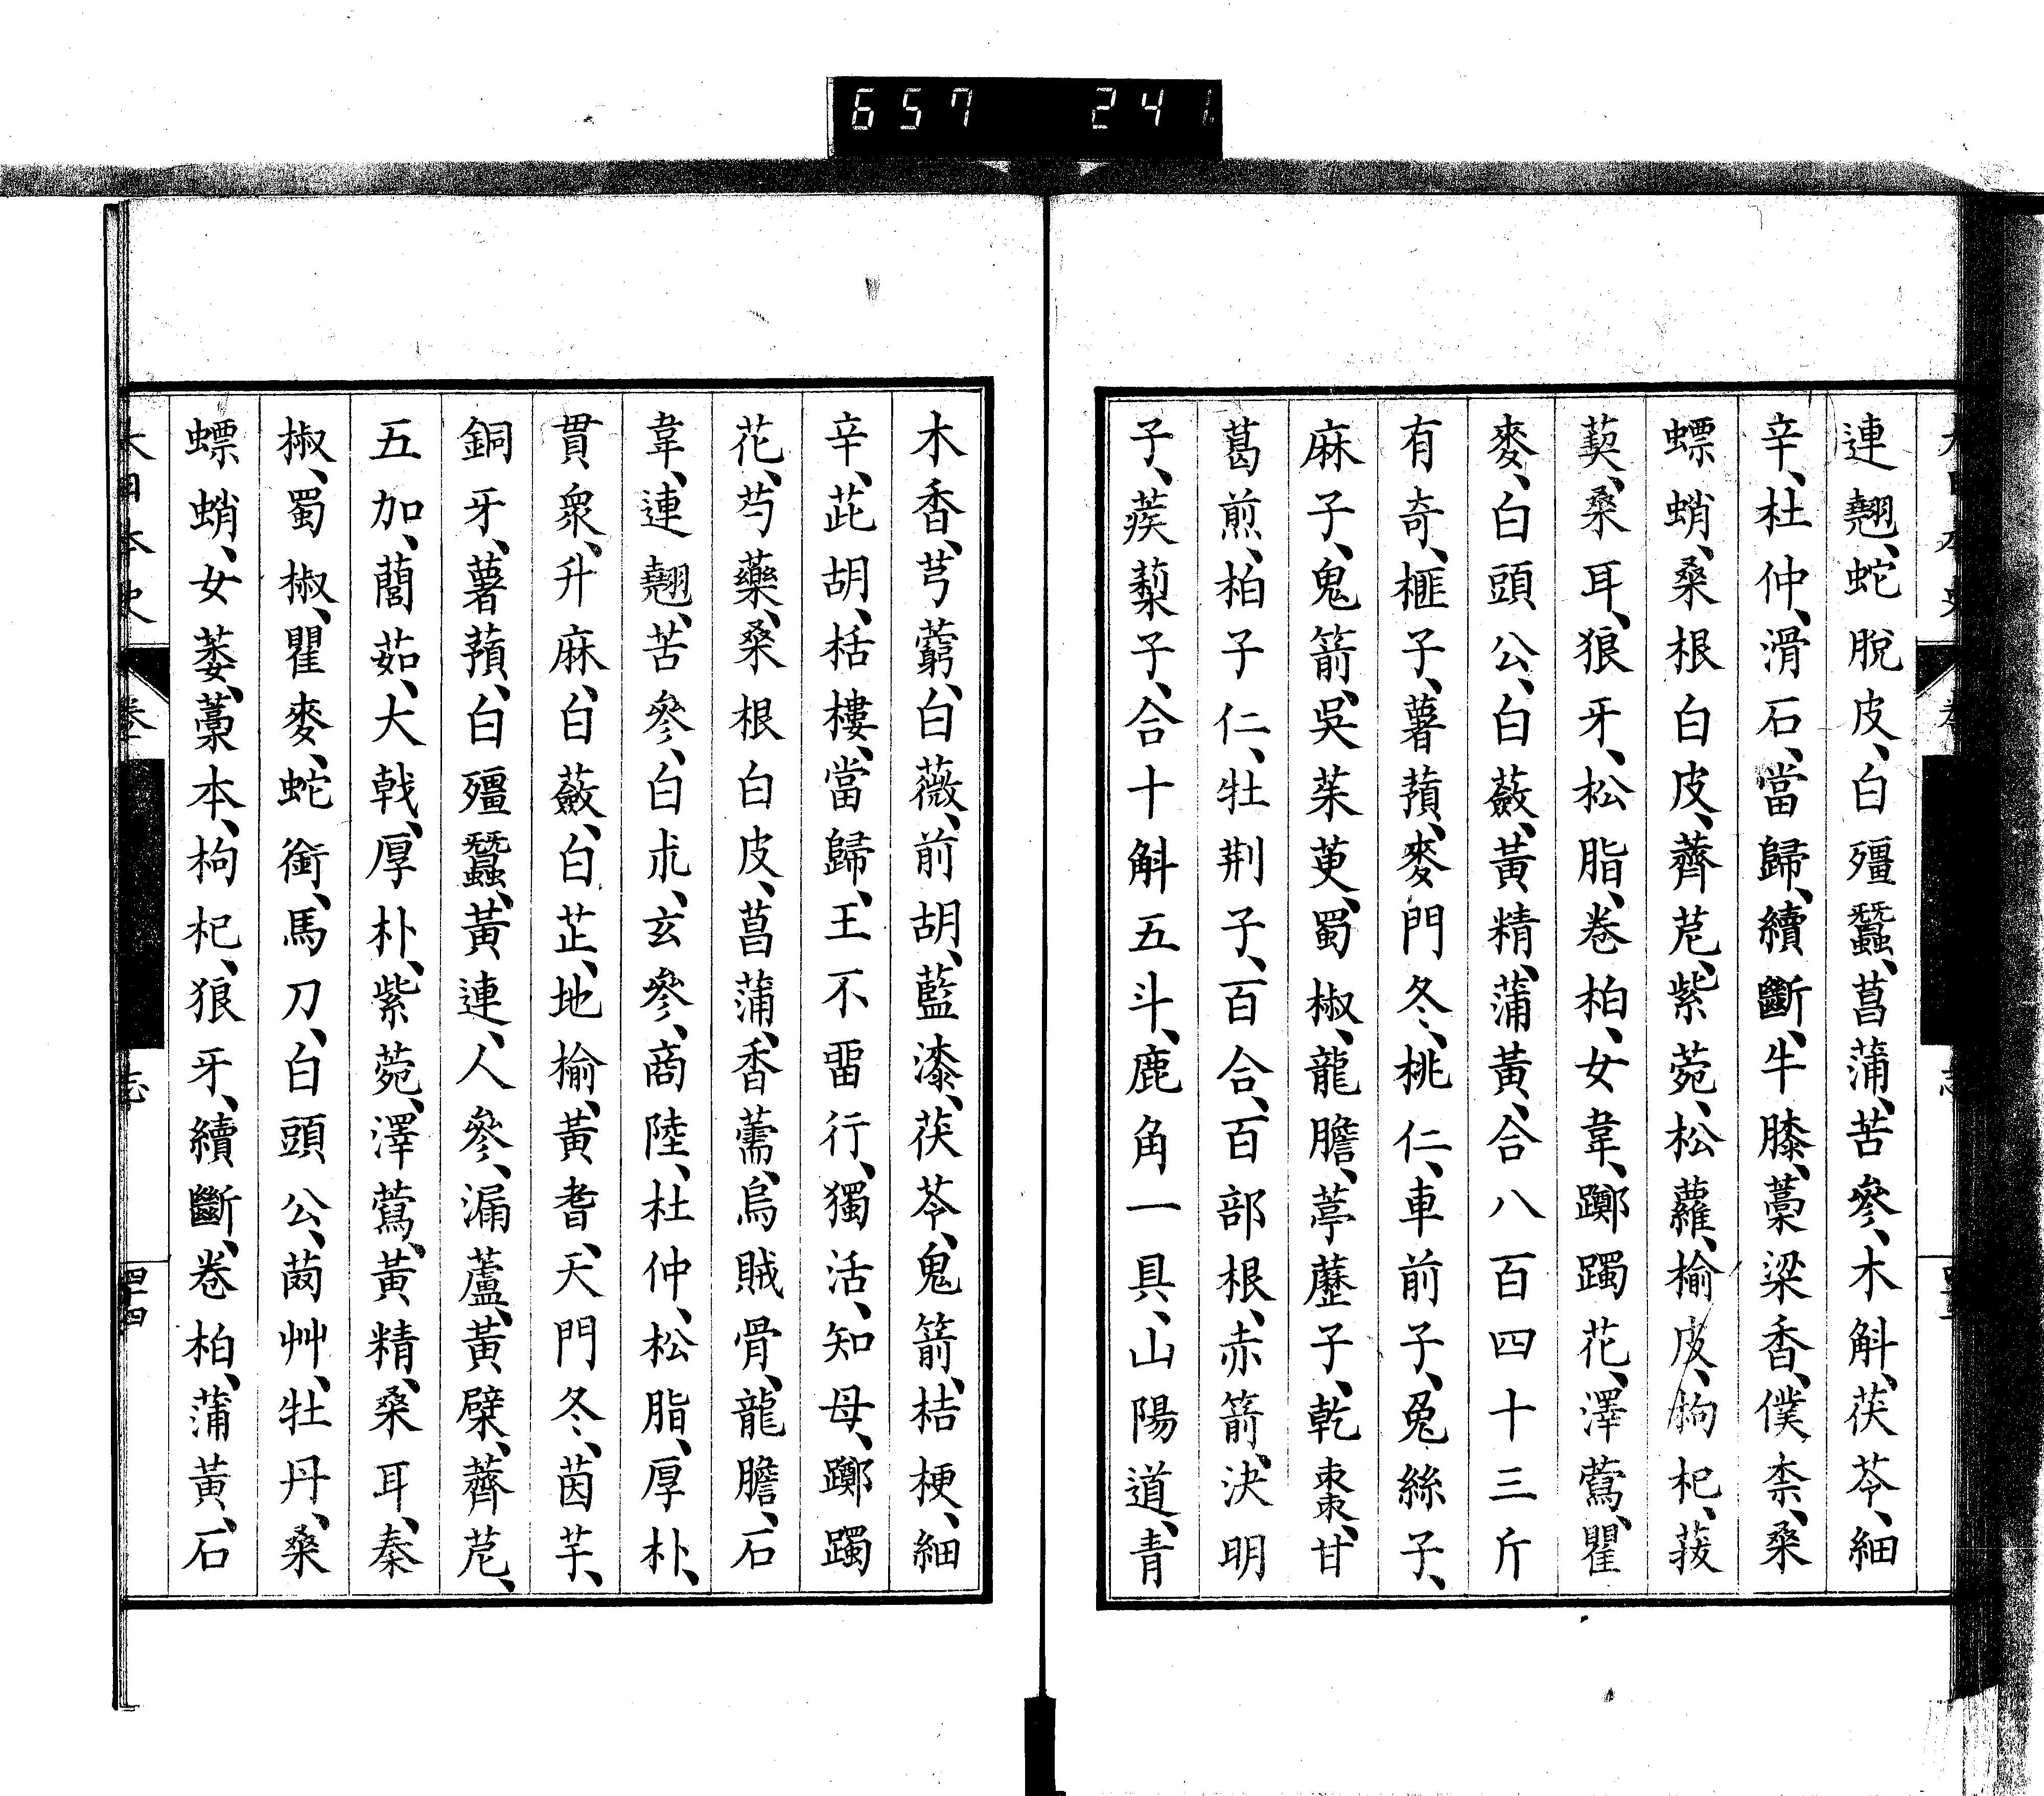 657 241
連翹、蛇脫皮、白殭蠶、菖蒲、苦參、木斛、茯苓、細
辛、杜仲、滑石、當歸、續斷、牛膝、藁梁香、僕柰、桑
螵蛸、桑根白皮、薺苨、紫菀、松蘿、榆皮、枸杞、菝
葜、桑耳、狼牙、松脂、卷柏、女韋、躑躅花、澤蔿、瞿
麥、白頭公、白蘞、黃精、蒲黃、合八百四十三斤
有奇、榧子、薯蕷、麥門冬、桃仁、車前子、兔絲子、
麻子、鬼箭、吳茱萸、蜀椒、龍膽、葶藶子、乾棗、甘
葛煎、柏子仁、牡荆子、百合、百部根、赤箭、決明
子、蒺蔾子、合十斛五斗、鹿角一具、山陽道、青
木香、芎藭、白薇、前胡、藍漆、茯苓、鬼箭、桔梗、細
辛、茈胡、栝樓、當歸、王不畱行、獨活、知母、躑躅
花、芍藥、桑根白皮、菖蒲、香薷、烏賊骨、龍膽、石
韋、連翹、苦參、白朮、玄參、商陸、杜仲、松脂、厚朴、
貫衆、升麻、白蘞、白芷、地榆、黃耆、天門冬、茵芋、
銅牙、薯蕷、白殭蠶、黃連、人參、漏蘆、黃檗、薺苨、
五加、藺茹、大戟、厚朴、紫菀、澤蔿、黃精、桑耳、秦
椒、蜀椒、瞿麥、蛇銜、馬刀、白頭公、茵艸、牡丹、桑
螵蛸、女萎、藁本、枸杞、狼牙、續斷、卷柏、蒲黃、石
大日本史 卷 志 四四